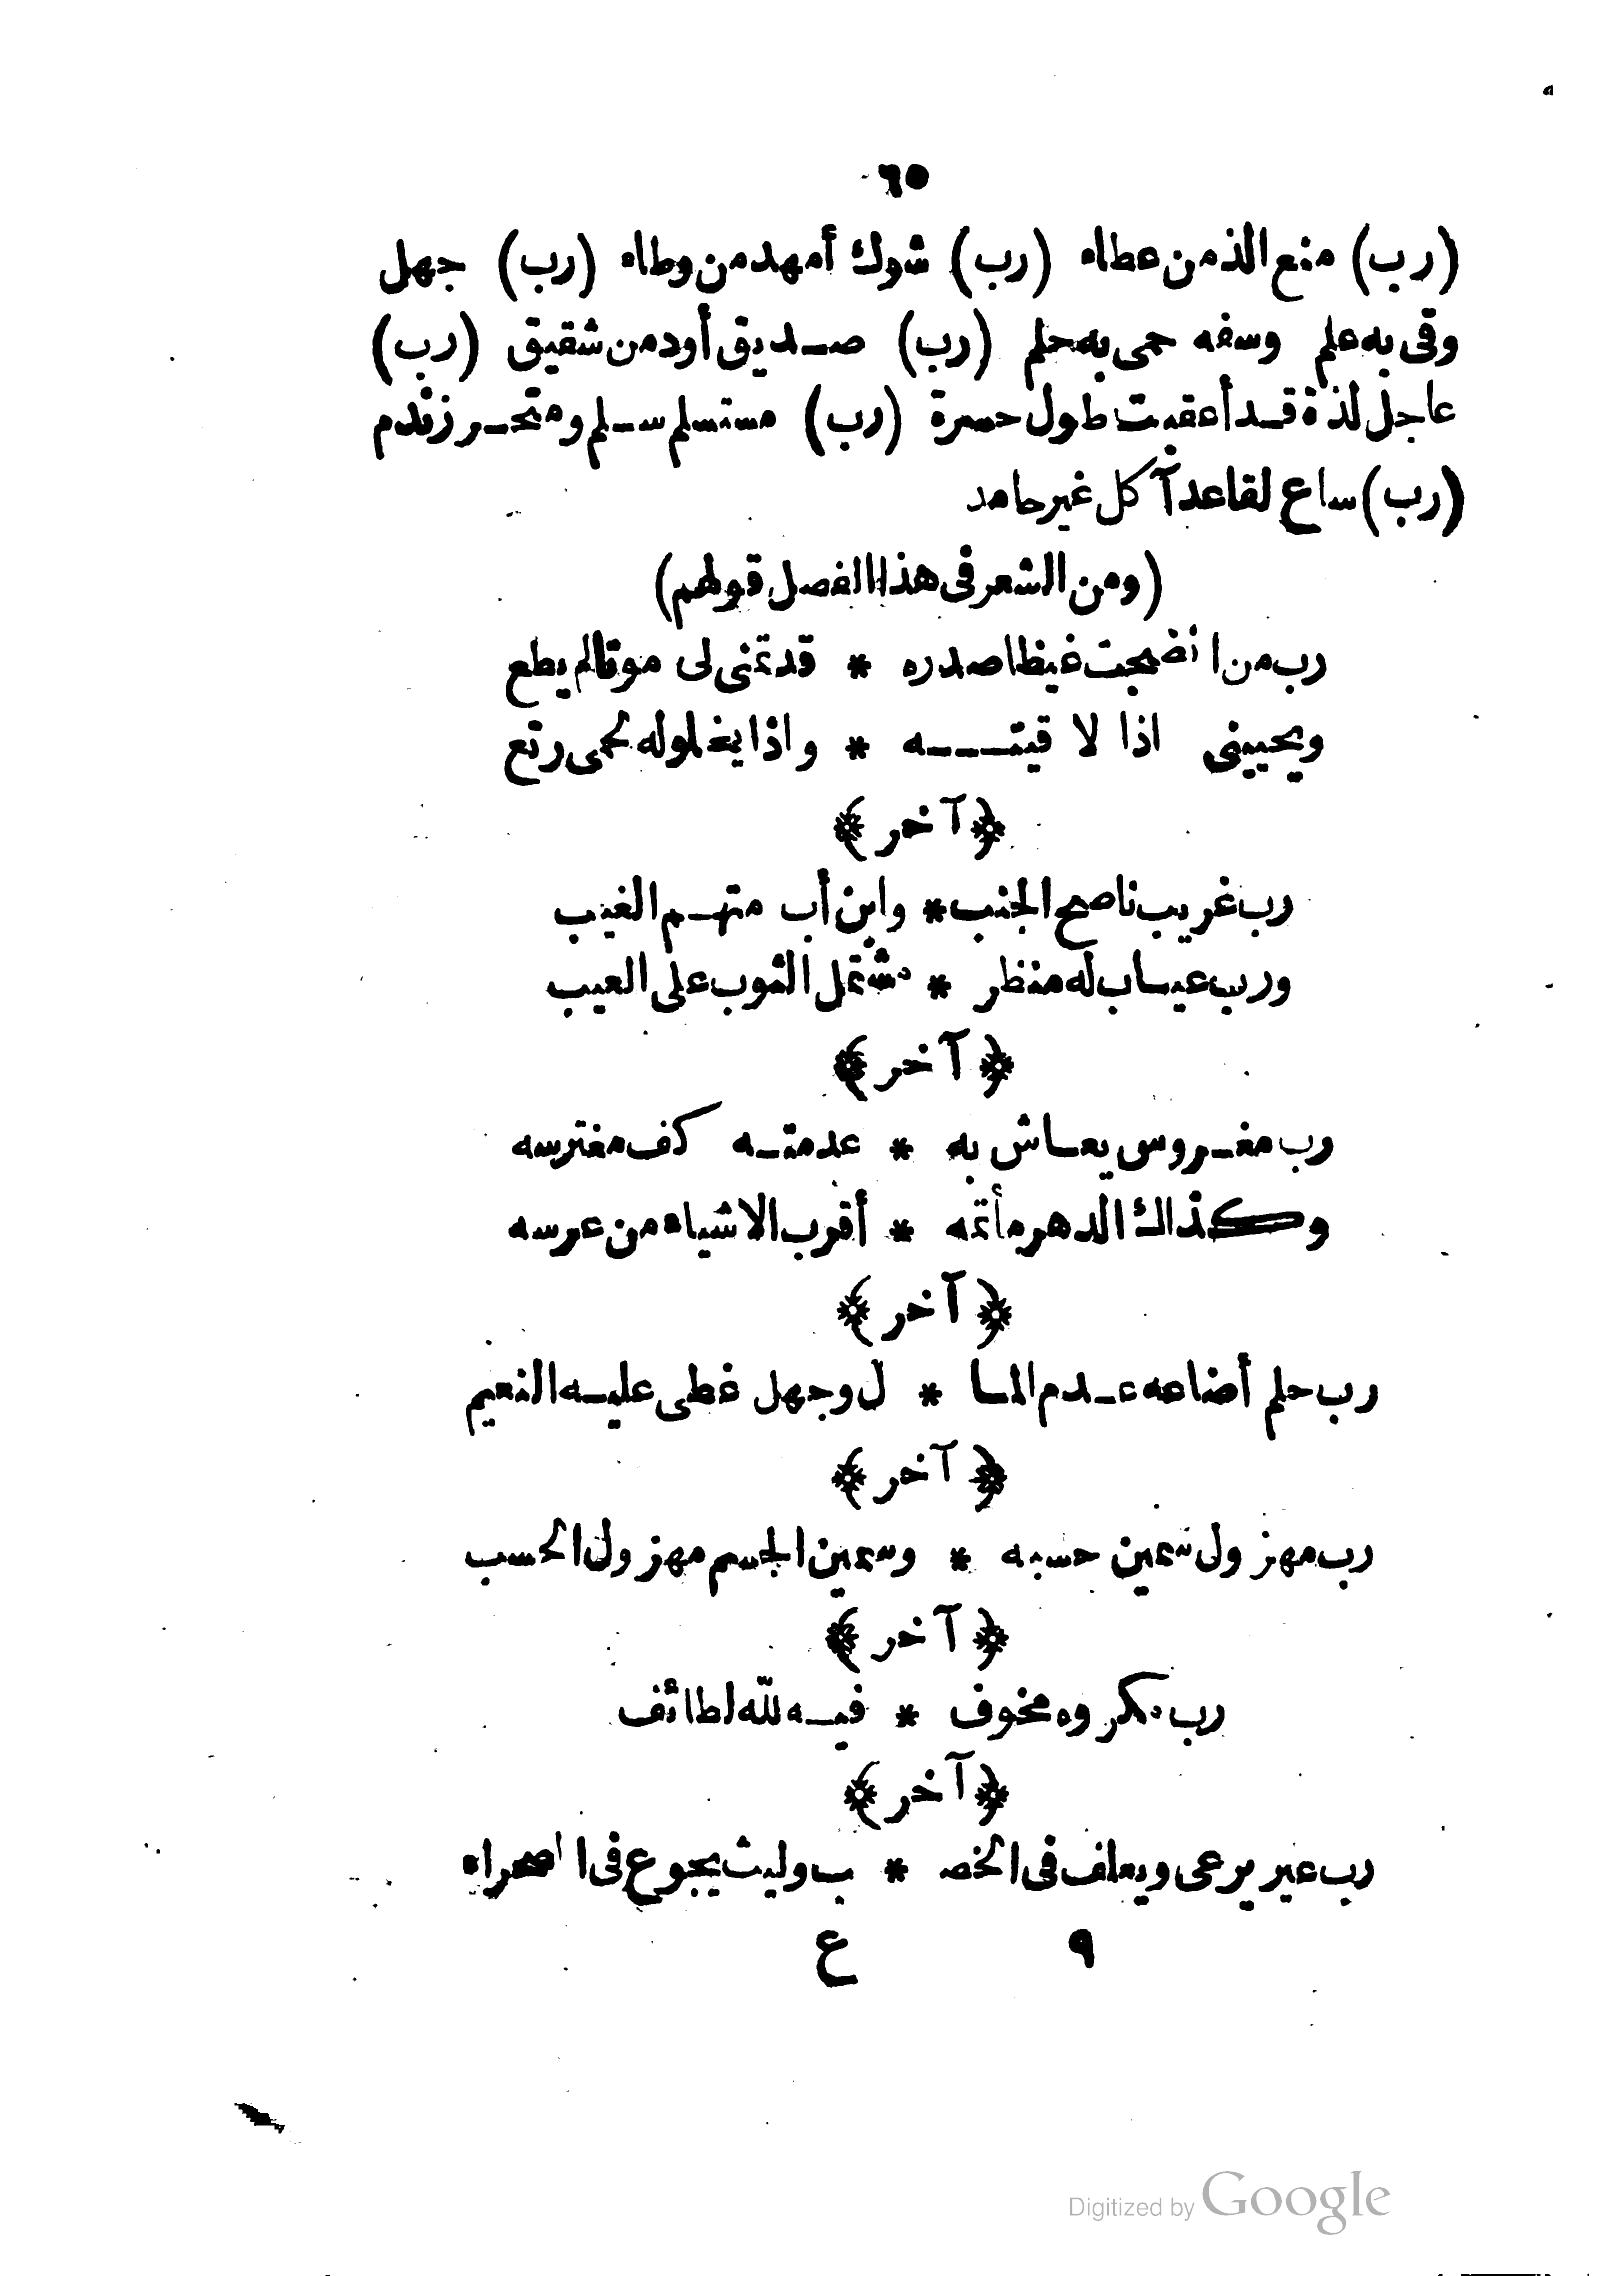 ٦٥
(رب) منع ألذ من عطاء (رب) شوك أمهد من وطاء (رب) جهل
وقى به علم وسفه حمى به حلم (رب) صديق أود من شقيق (رب)
عاجل لذة قد أعقبت طول حسرة (رب) مستسلم سلم ومتحرز ندم
(رب) ساع لقاعد آكل غير حامد
(ومن الشعر فى هذا الفصل قولهم)
رب من انضجت غيظا صدره * قد تمنى لى موتا لم يطع
ويحيينى اذا لاقيته * واذا يخلو له لحمى رتع
﴿آخر﴾
رب غريب ناصح الجنب * وابن أب متهم الغيب
ورب عياب له منظر * مشتمل الثوب على العيب
﴿آخر﴾
رب مغروس يعاش به * عدمته كف مغترسه
وكذاك الدهر مأتمه * أقرب الاشياء من عرسه
﴿آخر﴾
رب حلم أضاعه عدم الما * ل وجهل غطى عليه النعيم
﴿آخر﴾
رب مهزول سمين حسبه * وسمين الجسم مهزول الحسب
﴿آخر﴾
رب مكروه مخوف * فيه لله لطائف
﴿آخر﴾
رب عير يرعى ويعلف فى الخصـ * ب وليث يجوع فى الصحراء
٩ ع
Digitized by Google